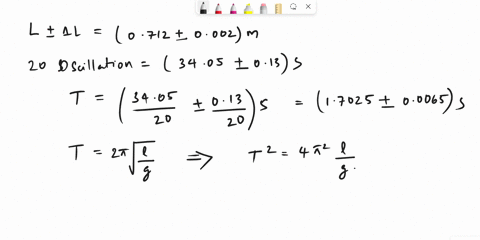 L ± ΔL = (0.712 ± 0.002) m
20 Oscillation = (34.05 ± 0.13) S
T = (34.05/20 ± 0.13/20) S = (1.7025 ± 0.0065) S
T = 2π√(l/g) ⇒ T² = 4π² l/g.